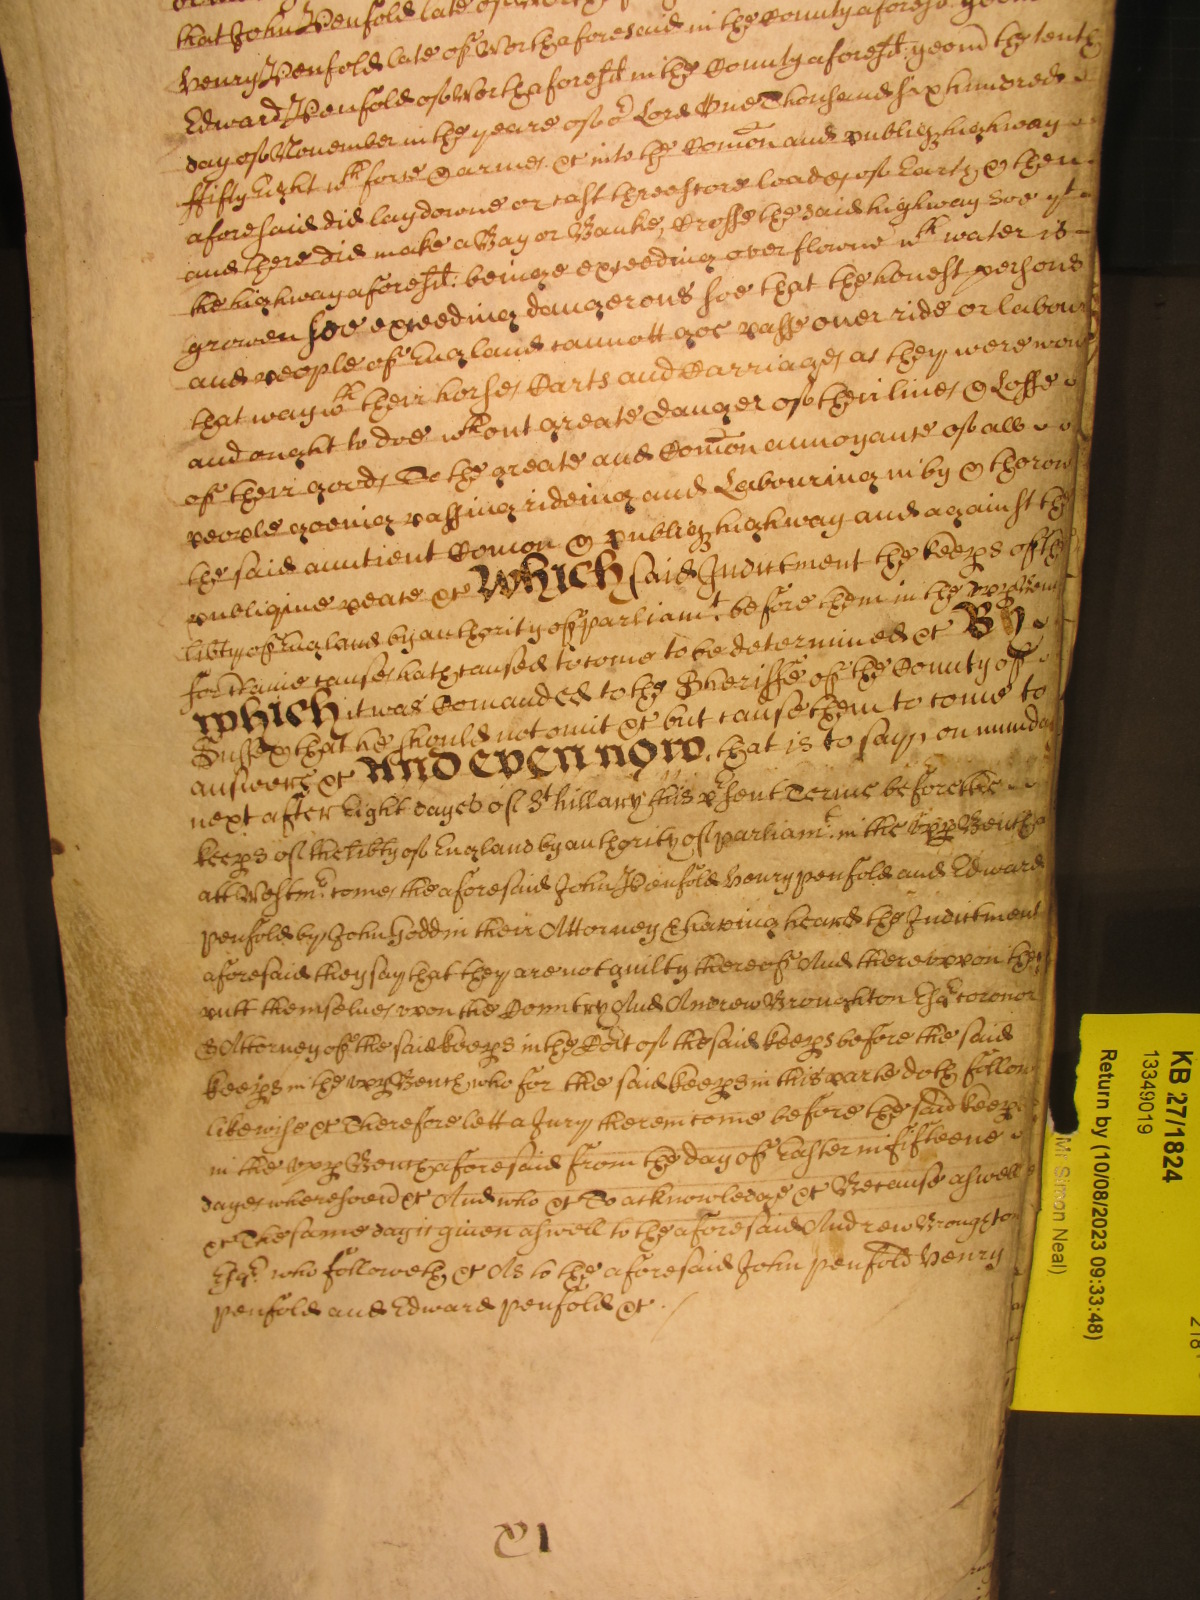 that John Penfold late of Worth
Henry Penfold late of Worth aforesaid in the County aforesd.
Edward Penfold of Worth aforesd. in the County aforesd. yeom the tenth
day of November in the yeare of or Lord One Thousand six hundred
ffifty Eight wth force & armes &c into the Comon and publiq highway
aforesaid did lay downe or cast threescore loades of Earth & then
and there did make a Bay or Banke, Crosse the said highway Soe yt
the highway aforesd. beinge exceeding overflowne wth water is
growen soe exceeding dangerous soe that the honest persons
and people of England cannott goe passe over ride or labour
that way wth their horses Carts and Carriages as they were wont
and ought to doe wthout greate danger of their lives & Losse
of their goods To the greate and Comon annoyance of all
people goeing passing rideing and Labouring in by & thorow
the said auntient Comon & publiq highway and against the
publique peace &c Which said Indictment the keeps of the
libty of England by authority of parliamt. before them in the upp Bench
for Certaine causes hath caused to come to be determined &c By
which it was Comanded to the Sheriffe of the County of
Sussex that he should not omit &c but cause them to come to
answere &c And even now, that is to say, on munday
next after Eight dayes of St hillary this psent Terme before the
keeps of the libty of England by authority of parliamt. in the upp Bench
att Westmr. come, the aforesaid John Penfold Henry penfold and Edward
penfold by John Godden their Attorney & having heard the Indictment
aforesaid they say that they are not guilty thereof And thereuppon they
putt themselves upon the Country And Andrew Broughton Esqr coronor
& Attorney of the said keeps in the Cort of the said keeps before the said
keeps in the upp Bench, who for the said keeps in this parte doth follow
likewise &c Therefore lett a Jury therein come before the said keeps
in the upp Bench aforesaid from the day of Easter in fifteene
dayes wheresoevr &c And who &c To acknowledge &c Because aswell
&c The same day is given aswell to the aforesaid Andrew Broughton
Esqr. who followeth &c As to the aforesaid John penfold Henry
penfold and Edward penfold &c.
KB 27/1824
13349019
Return by (10/08/2023 09:33:48)
Mr Simon Neal)